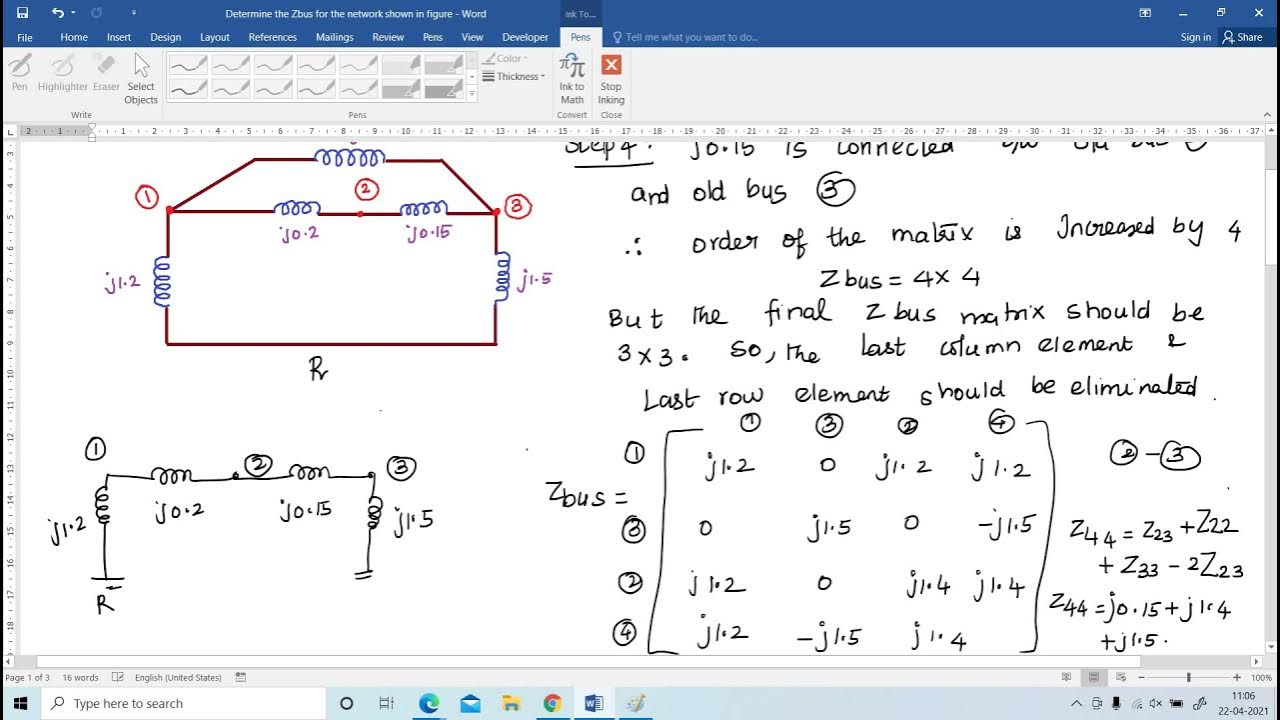 Determine the Zbus for the network shown in figure - Word
Ink To...
Sign in
Share
File
Home
Insert
Design
Layout
References
Mailings
Review
View
Developer
Pens
Tell me what you want to do...
Pen
Highlighter
Eraser
Select
Objects
Color
Thickness
Ink to
Math
Stop
Inking
Write
Pens
Convert
Close
Step 4: j0.15 is connected b/w old bus
and old bus ③
∴ order of the matrix is Increased by 4
Zbus = 4×4
But the final Zbus matrix should be
3×3. so, the last column element &
Last row element should be eliminated.
① ② ③
j0.2 j0.15
j1.2 j1.5
R
① ② ③
j0.2 j0.15
j1.2 j1.5
R
① ③ ② ④
① j1.2 0 j1.2 j1.2
Zbus =
③ 0 j1.5 0 -j1.5
② j1.2 0 j1.4 j1.4
④ j1.2 -j1.5 j1.4
② - ③
Z44 = Z23 + Z22
+ Z33 - 2Z23
Z44 = j0.15 + j1.4
+ j1.5.
Page 1 of 3
16 words
English (United States)
100%
Type here to search
11:06
22-04-2021